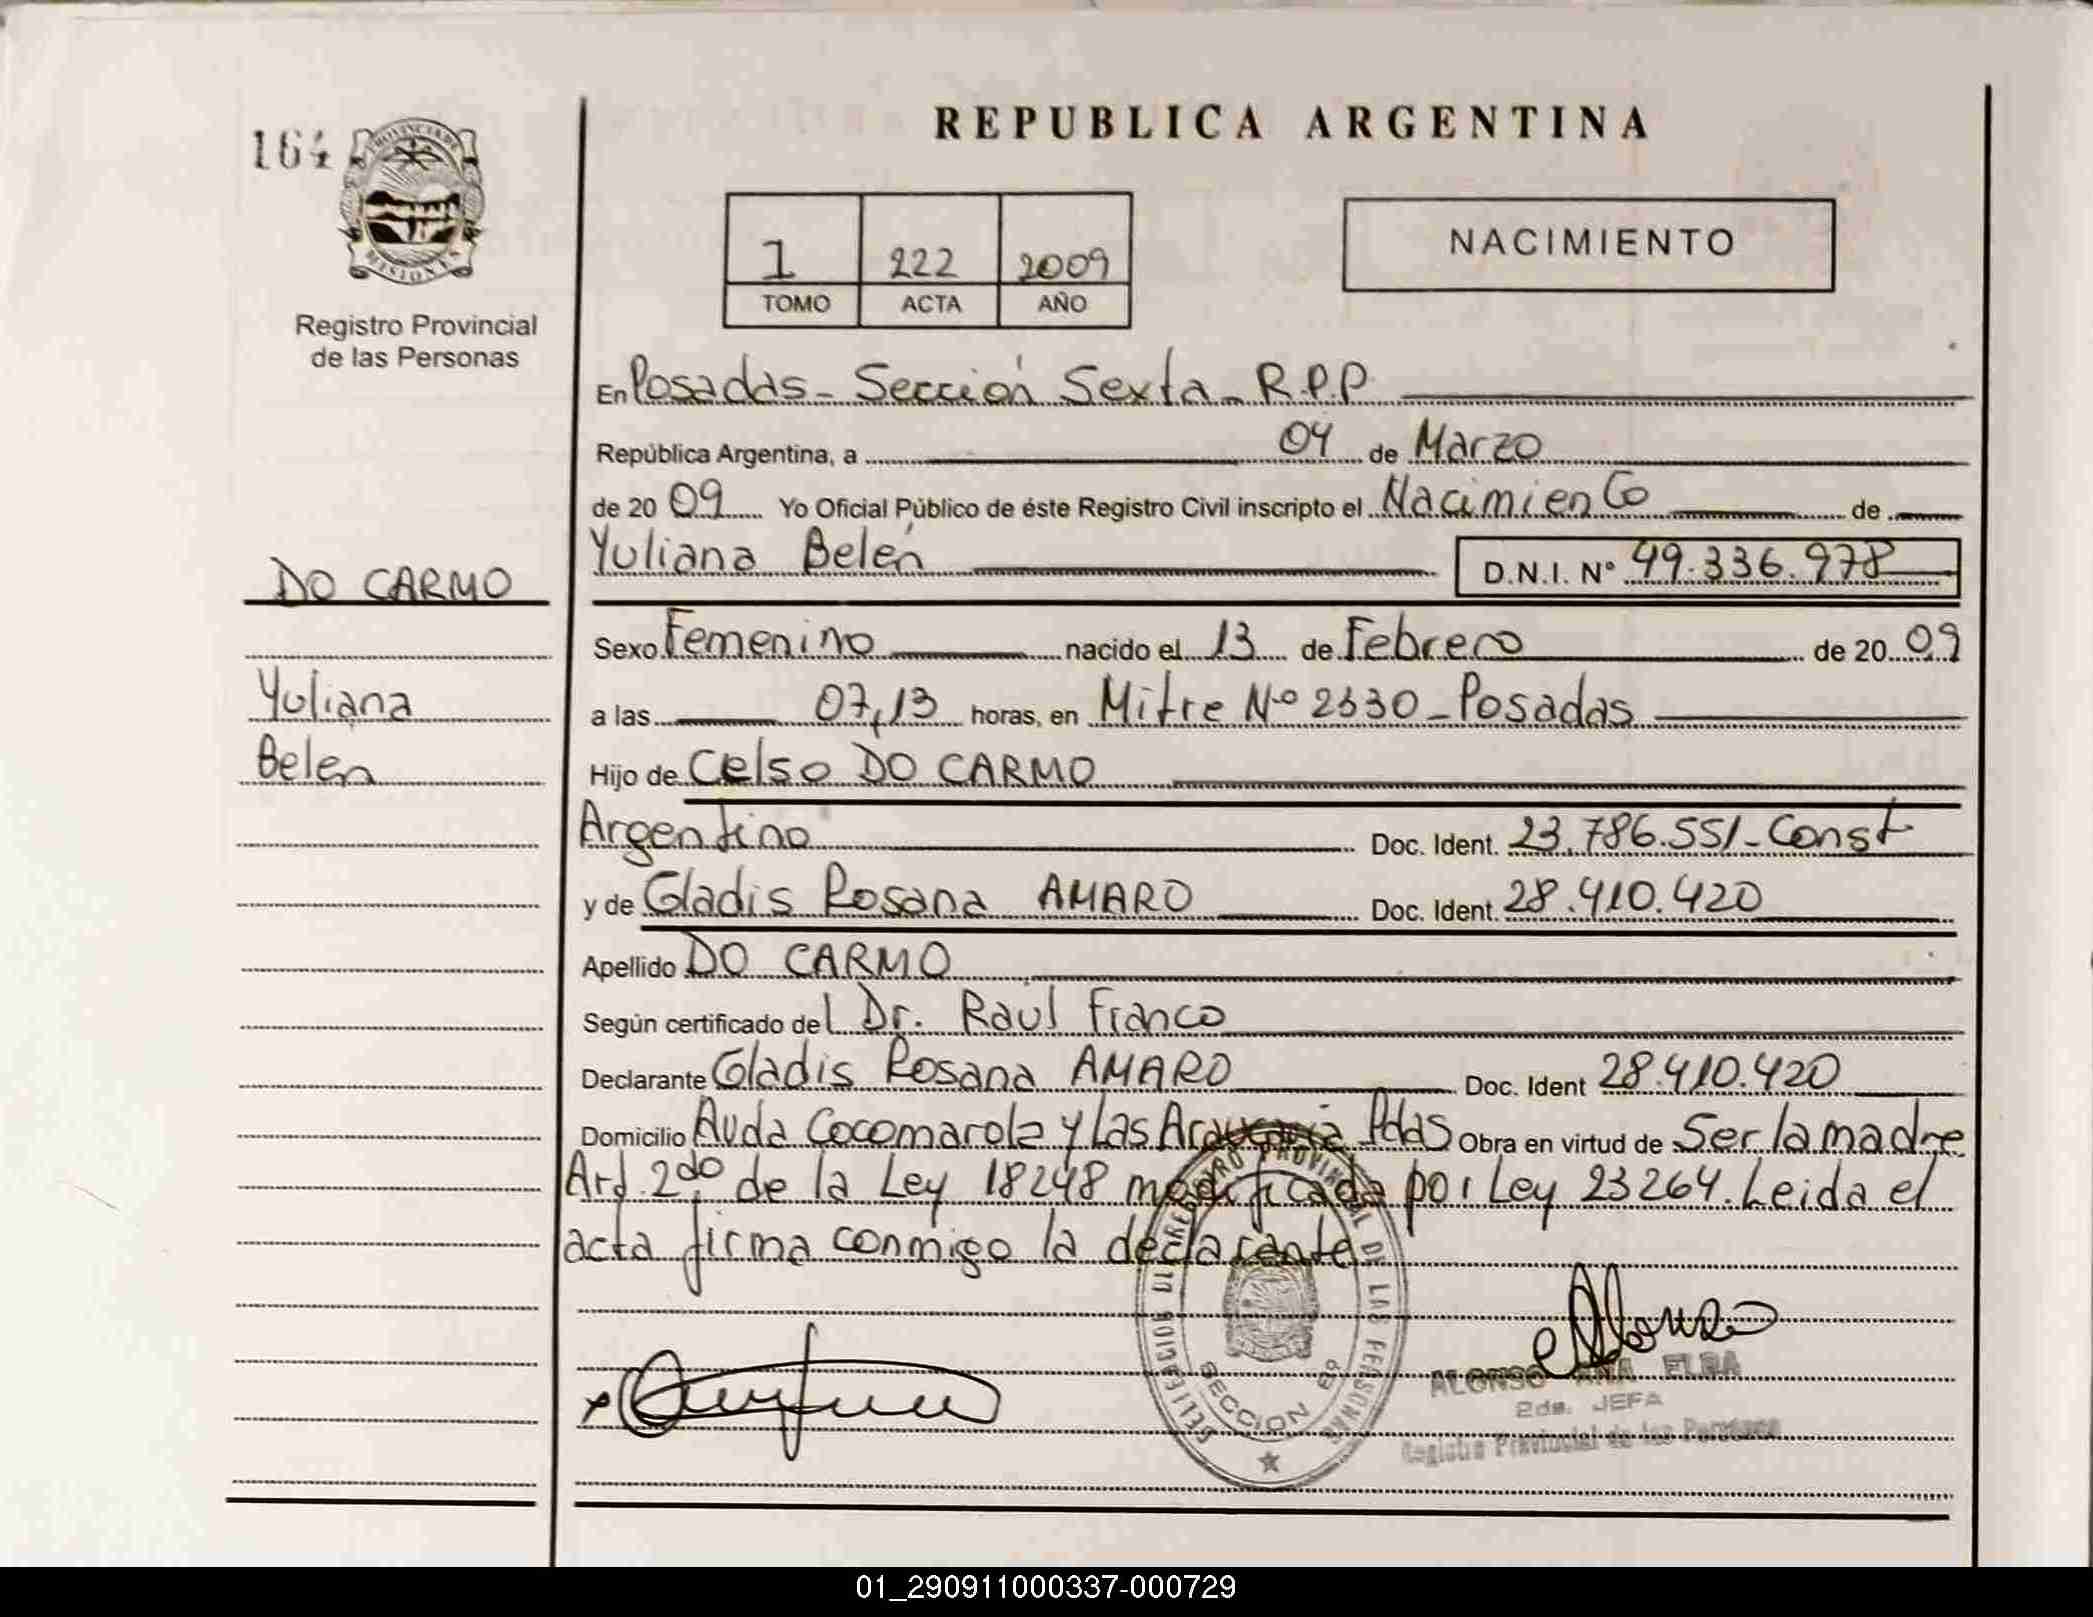 REPUBLICA ARGENTINA
164
PROVINCIA DE
MISIONES
Registro Provincial
de las Personas
1 222 2009
TOMO ACTA AÑO
NACIMIENTO
En Posadas - Sección Sexta - R.P.P
República Argentina, a 04 de Marzo
de 20 09 Yo Oficial Público de éste Registro Civil inscripto el Nacimiento de
Yuliana Belén D.N.I. Nº 49.336.978
DO CARMO
Yuliana
Belen
Sexo Femenino nacido el 13 de Febrero de 20 09
a las 07,13 horas, en Mitre Nº 2330 - Posadas
Hijo de Celso DO CARMO
Argentino Doc. Ident. 23.786.551 - Const
y de Gladis Rosana AMARO Doc. Ident. 28.410.420
Apellido DO CARMO
Según certificado del Dr. Raúl Franco
Declarante Gladis Rosana AMARO Doc. Ident 28.410.420
Domicilio Avda Cocomarola y Las Araucaria Pdas Obra en virtud de Ser la madre
Art. 2do de la Ley 18248 modificada por Ley 23264. Leida el
acta firma conmigo la declarante
REGISTRO PROVINCIAL DE LAS PERSONAS
SECCION
ALONSO ANA ELBA
2da. JEFA
Registro Provincial de las Personas
01_290911000337-000729